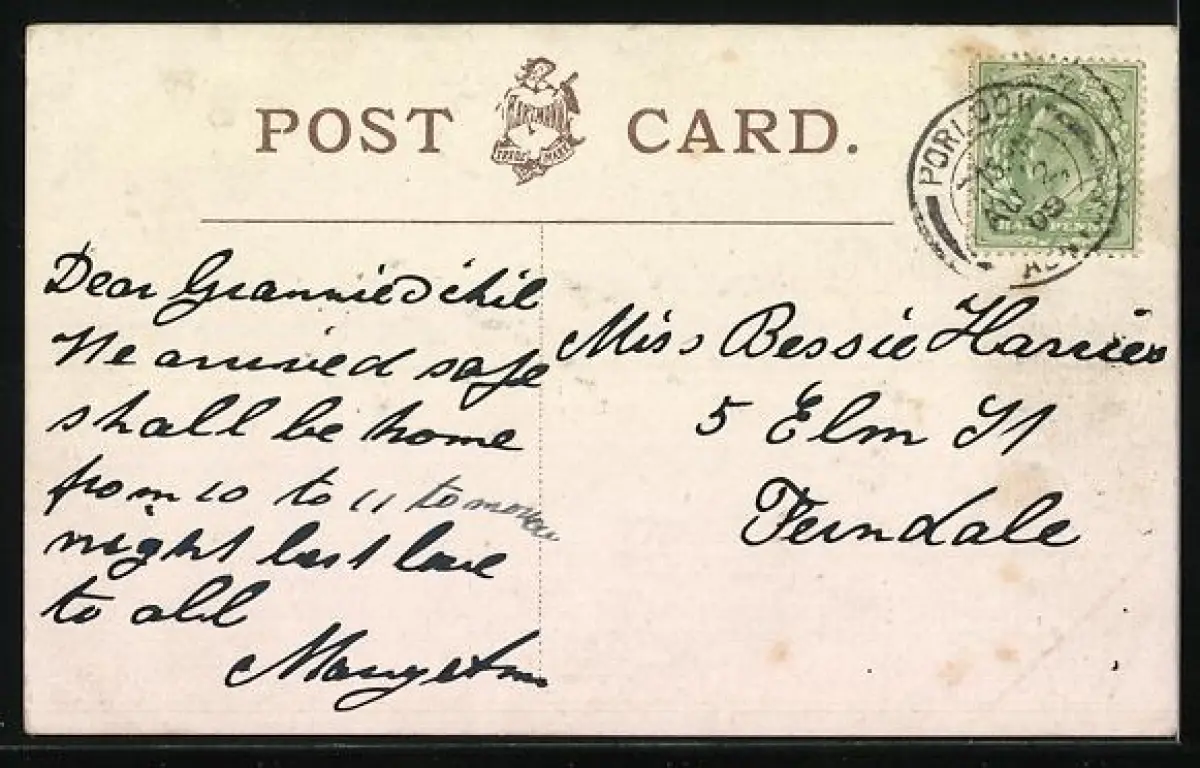 POST CARD.
HARTMANN
TRADE MARK
PORLOCK
AU 12
09
HALFPENNY
Dear Grannie & chil
We arrived safe
shall be home
from 10 to 11 tomorrow
night best love
to all
Miss Bessie Harries
5 Elm St
Ferndale